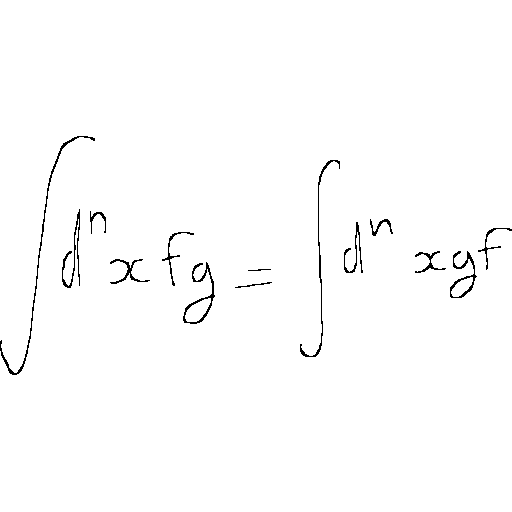 ∫ dⁿ x f g = ∫ dⁿ x g f